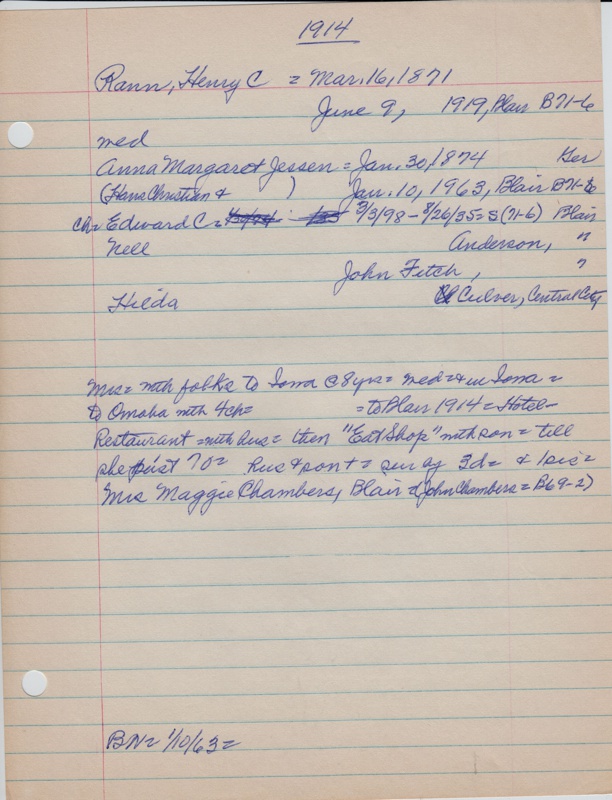 1914
Rann, Henry C = Mar. 16, 1871
June 9, 1919, Blair B71-6
med
Anna Margaret Jessen = Jan. 30, 1874 Ger
(Hans Christian & ) Jan. 10, 1963, Blair B71-6
Ch= Edward C = 3/3/98 - 8/26/35 = S (71-6) Blair
Nell Anderson, "
John Fitch, "
Hilda Culver, Central City
Mrs = with folks to Iowa @ 8yrs = med = & in Iowa =
to Omaha with 4ch = = to Blair 1914 = Hotel-
Restaurant = with hus = then "Eat Shop" with son = till
she past 70 = Hus & son + = sur by 3d = & 1 sis =
Mrs Maggie Chambers, Blair (John Chambers = B69-2)
BN = 1/10/63 =